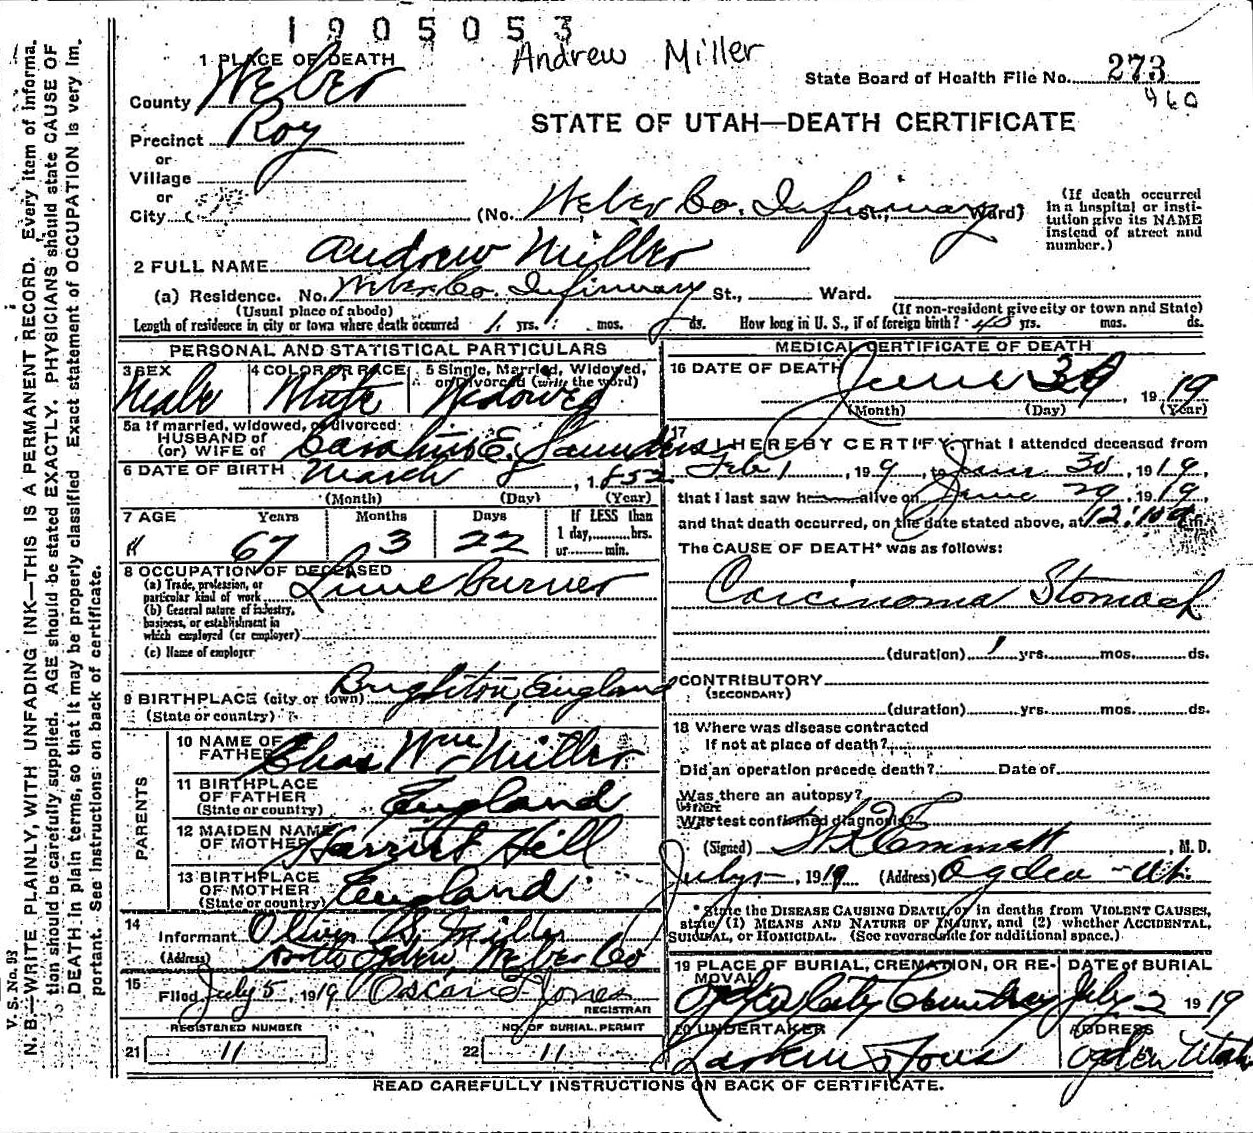 1905053
Andrew Miller
1 PLACE OF DEATH
County Weber
State Board of Health File No. 273
460
Precinct Roy
STATE OF UTAH—DEATH CERTIFICATE
or
Village
or
City
(No. Weber Co. Infirmary St., Ward)
(If death occurred in a hospital or institution give its NAME instead of street and number.)
2 FULL NAME Andrew Miller
(a) Residence. No. Weber Co. Infirmary St., Ward.
(Usual place of abode) (If non-resident give city or town and State)
Length of residence in city or town where death occurred 1 yrs. mos. ds. How long in U. S., if of foreign birth? 40 yrs. mos. ds.
PERSONAL AND STATISTICAL PARTICULARS
3 SEX Male
4 COLOR OR RACE White
5 Single, Married, Widowed, or Divorced (write the word) Widowed
5a If married, widowed, or divorced
HUSBAND of
(or) WIFE of E. Saunders
6 DATE OF BIRTH March 8, 1852
(Month) (Day) (Year)
7 AGE Years Months Days If LESS than
67 3 22 1 day, hrs.
or min.
8 OCCUPATION OF DECEASED
(a) Trade, profession, or particular kind of work Lime burner
(b) General nature of industry, business, or establishment in which employed (or employer)
(c) Name of employer
9 BIRTHPLACE (city or town) Brighton, England
(State or country)
PARENTS
10 NAME OF FATHER Chas Wm Miller
11 BIRTHPLACE OF FATHER England
(State or country)
12 MAIDEN NAME OF MOTHER Harriet Hill
13 BIRTHPLACE OF MOTHER England
(State or country)
14 Informant Oliver B. Miller
(Address) Ogden, Weber Co
15 Filed July 5, 1919 Oscar Jones
REGISTRAR
REGISTERED NUMBER
21 11
NO. OF BURIAL PERMIT
22 11
MEDICAL CERTIFICATE OF DEATH
16 DATE OF DEATH June 30, 1919
(Month) (Day) (Year)
17 I HEREBY CERTIFY, That I attended deceased from
Feb 1, 199, to June 30, 1919,
that I last saw h alive on June 29, 1919,
and that death occurred, on the date stated above, at 12:10 a m.
The CAUSE OF DEATH* was as follows:
Carcinoma Stomach
(duration) 1 yrs. mos. ds.
CONTRIBUTORY
(SECONDARY)
(duration) yrs. mos. ds.
18 Where was disease contracted
If not at place of death?
Did an operation precede death? Date of
Was there an autopsy?
What test confirmed diagnosis?
(Signed) Emmett, M. D.
July 5, 1919 (Address) Ogden - Ut.
*State the DISEASE CAUSING DEATH, or in deaths from VIOLENT CAUSES,
state (1) MEANS AND NATURE OF INJURY, and (2) whether ACCIDENTAL,
SUICIDAL, or HOMICIDAL. (See reverse side for additional space.)
19 PLACE OF BURIAL, CREMATION, OR REMOVAL Ogden City Cemetery
DATE of BURIAL July 2 1919
20 UNDERTAKER Larkin & Sons
ADDRESS Ogden Utah
READ CAREFULLY INSTRUCTIONS ON BACK OF CERTIFICATE.
V. S. No. 93
N. B.—WRITE PLAINLY, WITH UNFADING INK—THIS IS A PERMANENT RECORD. Every item of informa-
tion should be carefully supplied. AGE should be stated EXACTLY. PHYSICIANS should state CAUSE OF
DEATH in plain terms, so that it may be properly classified. Exact statement of OCCUPATION is very im-
portant. See instructions on back of certificate.